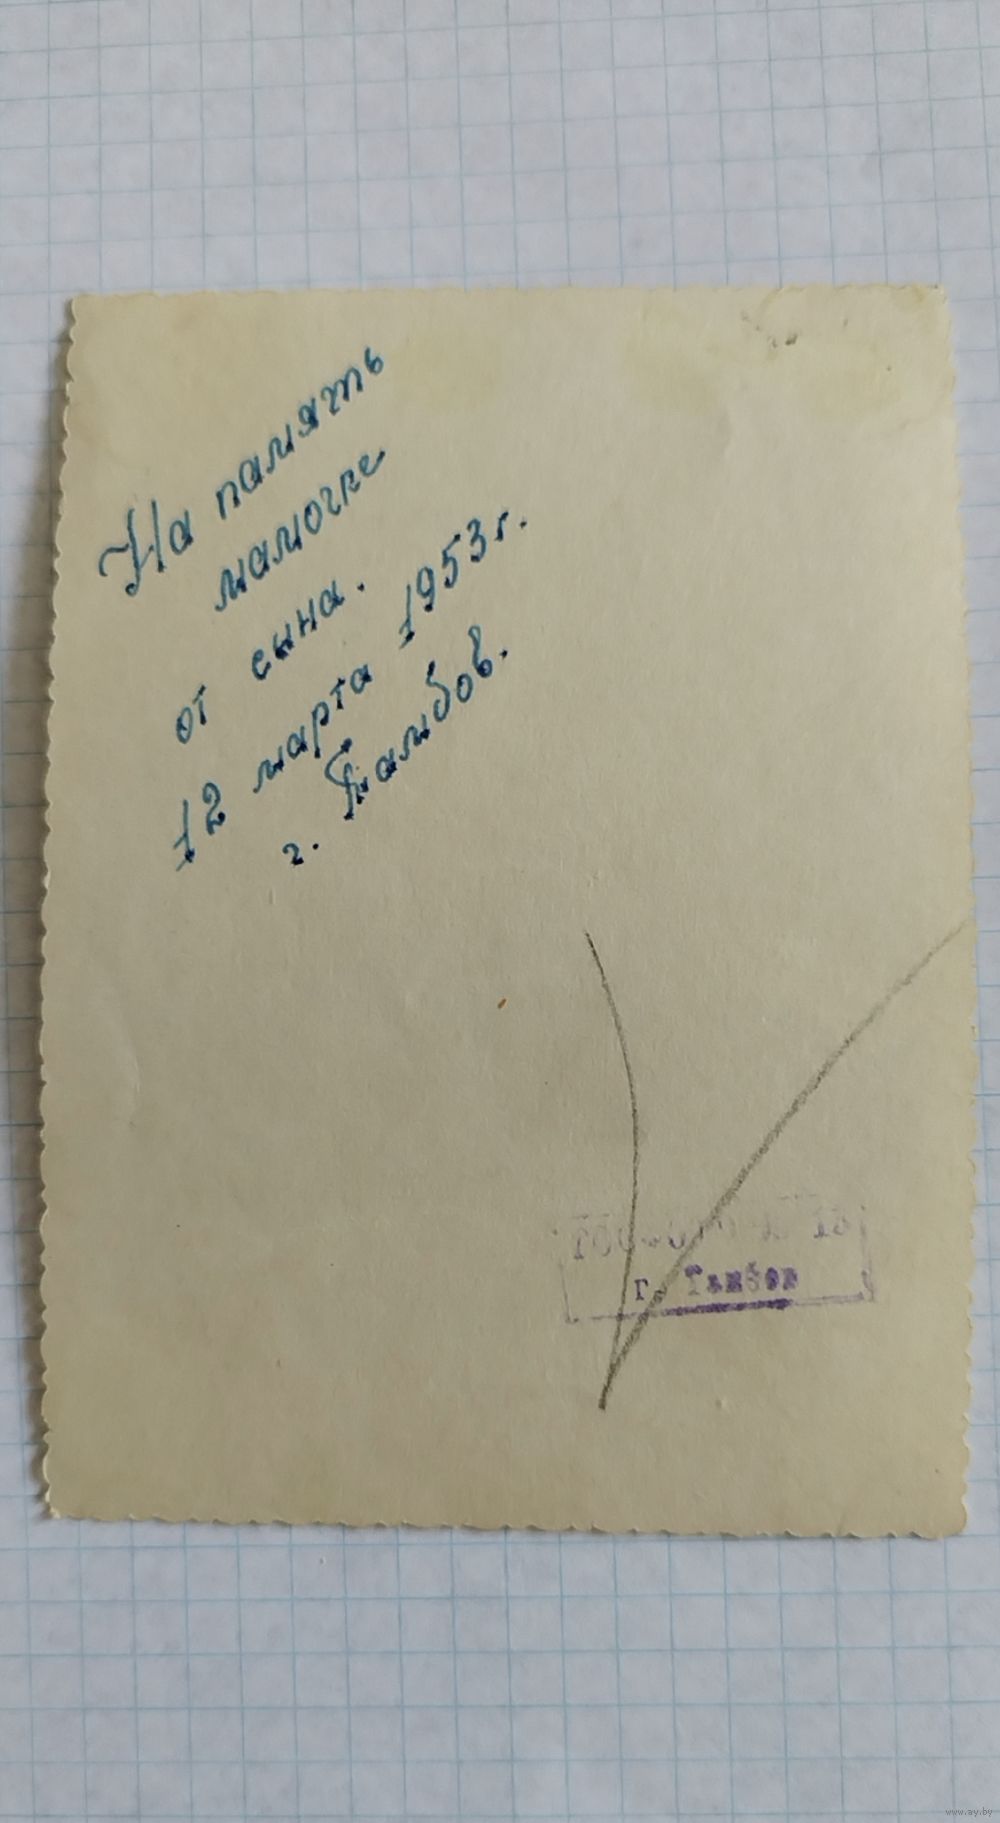 На память
мамочке
от сына.
12 марта 1953г.
г. Тамбов.
г. Тамбов
www.ay.by